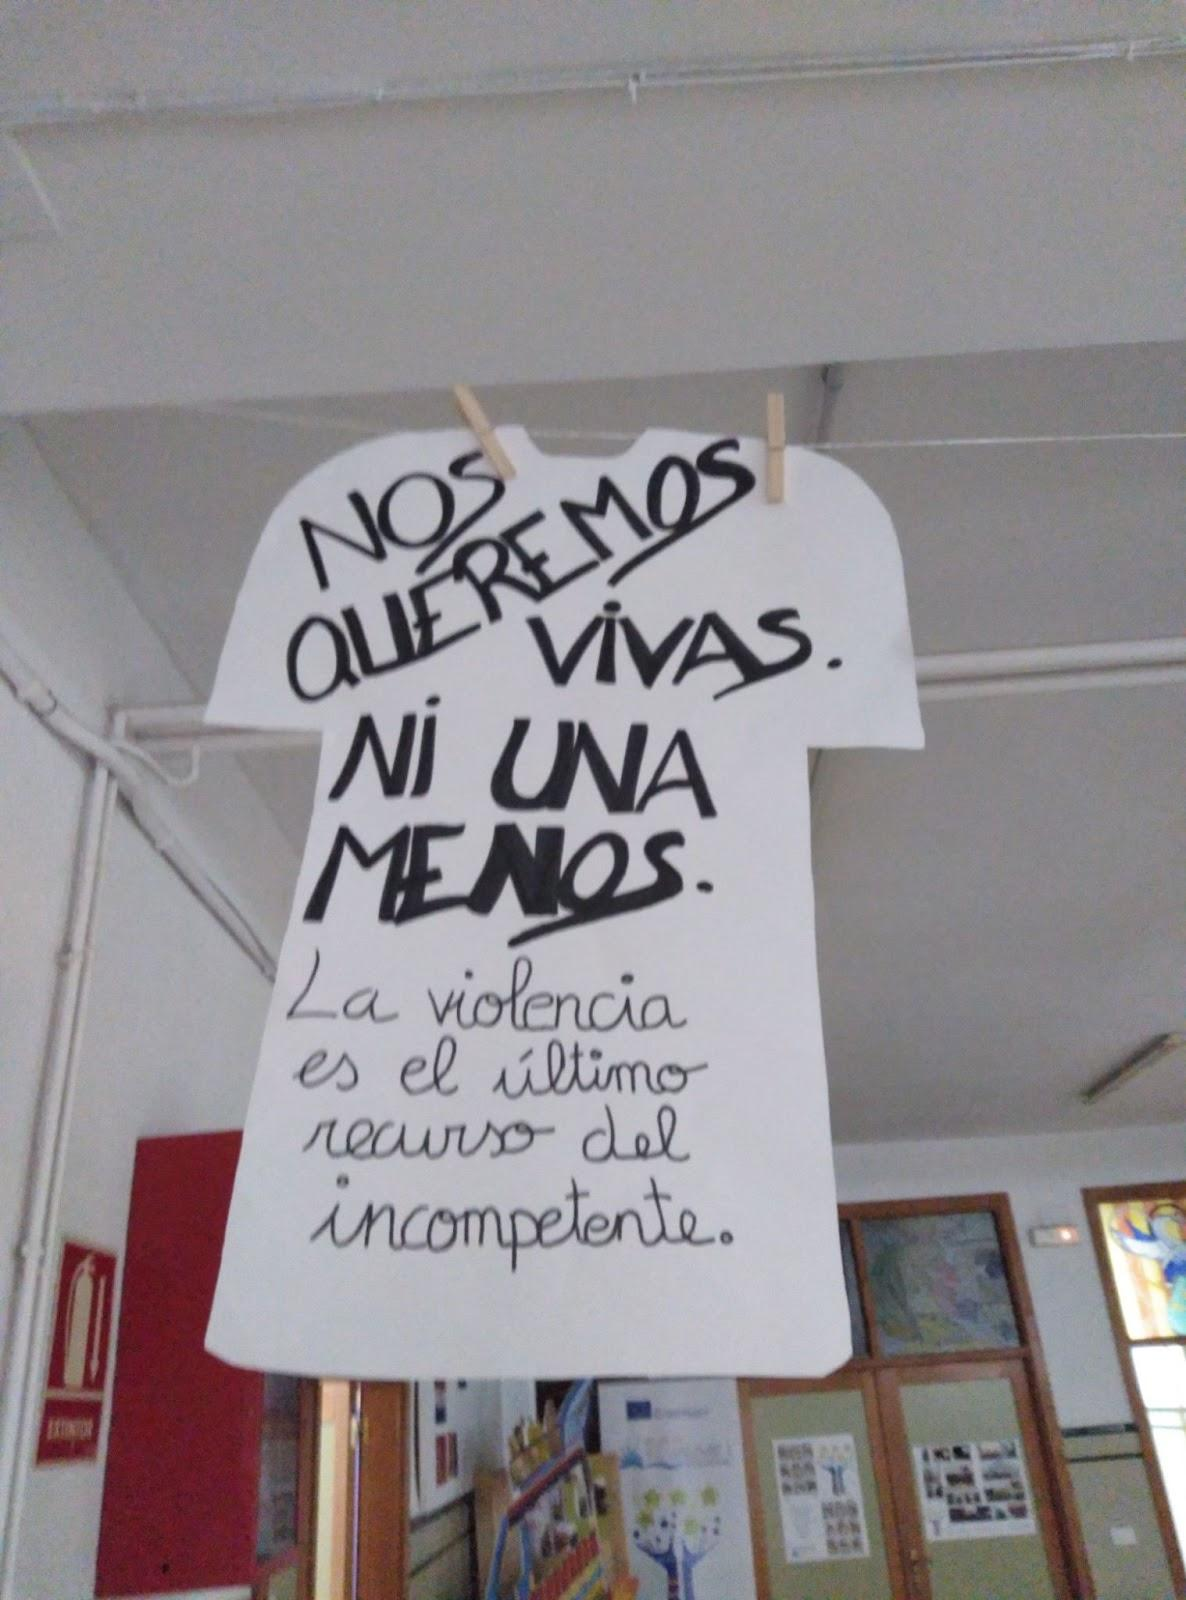 NOS
QUEREMOS
VIVAS.
NI UNA
MENOS.
La violencia
es el último
recurso del
incompetente.
EXTINTOR